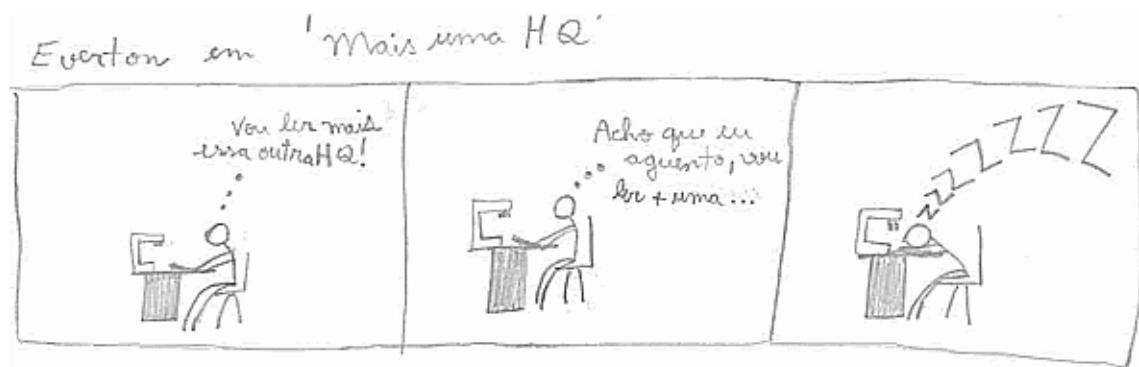 Everton em 'Mais uma HQ'
Vou ler mais
essa outra HQ!
Acho que eu
aguento, vou
ler + uma...
ZZZZZZZZ